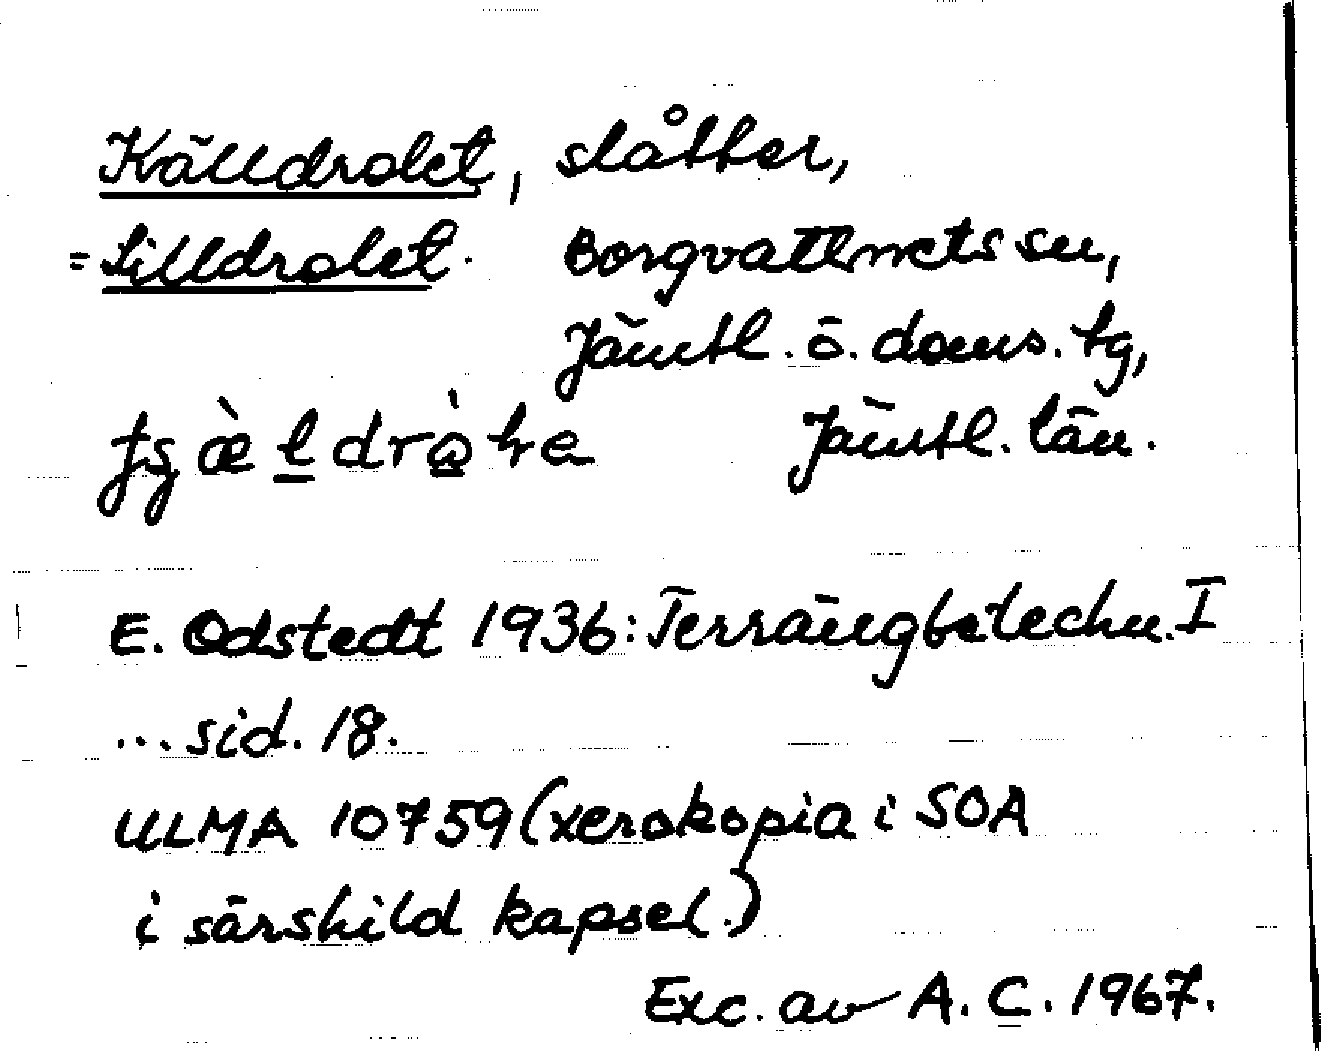 Källdrolet, slåtter,
= Lilldrolet. Borgvattnets sn,
Jämtl. ö. doms. tg,
Jämtl. län.
E. Odstedt 1936: Terrängbeteckn. I
... sid. 18.
ULMA 10759 (xerokopia i SOA
i särskild kapsel.)
Exc. av A. C. 1967.